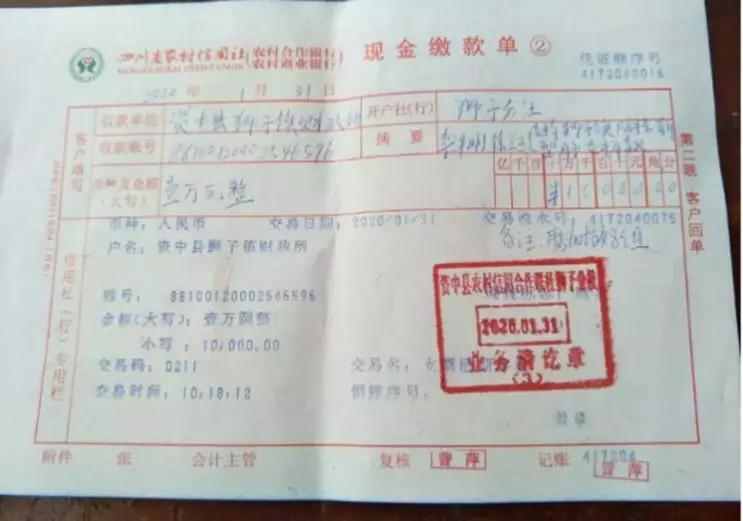 四川省农村信用社(农村合作银行 农村商业银行) 现金缴款单②
SICHUAN RURAL CREDIT UNION
凭证顺序号
4172040016
2020年 1月31日
客户填写
收款单位 资中县狮子镇财政所 开户社(行) 狮子分社
收款账号 88100120002546596 摘要
币种及金额(大写) 壹万元整
亿千百十万千百十元角分
¥1000000
第二联 客户回单
信用社(行)专用栏
币种:人民币 交易日期:2020/01/31 交易流水号:4172040075
户名:资中县狮子镇财政所
账号:88100120002546596
金额(大写):壹万圆整
小写:10,000.00
交易码:0211 交易名:
交易时间:10:18:12 销账序号:
资中县农村信用合作联社狮子分社
2020.01.31
业务清讫章
(3)
附件 张 会计主管 复核 曾萍 记账 417204
曾萍